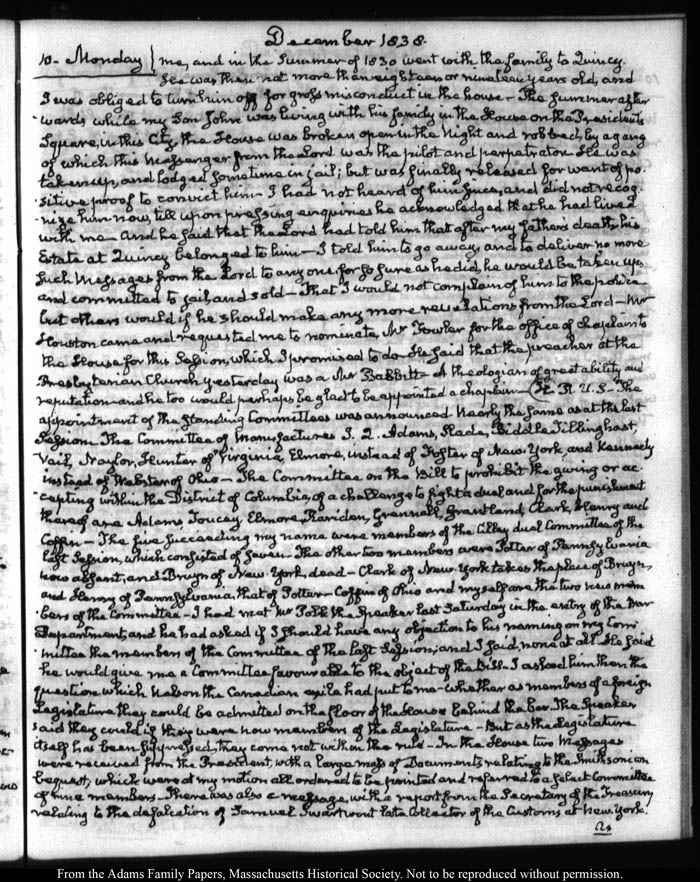 December 1838.
10. Monday } me, and in the Summer of 1830 went with the family to Quincy.
He was then not more than eighteen or nineteen years old, and
I was obliged to turn him off for gross misconduct in the house – The summer after
wards while my Son John was living with his family in the House on the President's
Square, in this City, the House was broken open in the Night and robbed, by a gang
of which this Messenger from the Lord was the pilot and perpetrator. He was
taken up, and lodged sometime in jail; but was finally released for want of po-
sitive proof to convict him – I had not heard of him since, and did not recog-
nize him now, till upon pressing enquiries he acknowledged that he had lived
with me – And he said that the Lord had told him that after my father's death, his
Estate at Quincy belonged to him – I told him to go away, and to deliver no more
such Messages from the Lord to any one, for so sure as he did, he would be taken up,
and committed to jail, and sold – That I would not complain of him to the police
but others would if he should make any more revelations from the Lord – Mr
Houston came and requested me to nominate Mr Fowler for the office of Chaplain to
the House for this Session, which I promised to do – He said that the preacher at the
Presbyterian Church yesterday was a Mr Babbitt – A theologian of great ability and
reputation – and he too would perhaps be glad to be appointed a chaplain – H. R. U. S – The
appointment of the Standing Committees was announced nearly the same as at the last
Session. The Committee of Manufactures J. Q. Adams, Slade, Biddle, Tillinghast,
Vail, Naylor, Hunter of Virginia, Elmore, instead of Foster of New York, and Kennedy
instead of Webster of Ohio – The Committee on the Bill to prohibit the giving or ac-
cepting within the District of Columbia, of a challenge to fight a duel and for the punishment
thereof are Adams, Toucey, Elmore, Rariden, Grennell, Grantland, Clark, Henry and
Coffin – The five succeeding my name were members of the Cilley duel Committee of the
last Session, which consisted of seven – The other two members were Potter of Pennsylvania
now absent, and Bruyn of New York, dead – Clark of New York takes the place of Bruyn,
and Henry of Pennsylvania, that of Potter – Coffin of Ohio and myself are the two new mem
bers of the Committee – I had met Mr Polk the Speaker last Saturday in the entry of the War
Department, and he had asked if I should have any objection to his naming on my Com-
mittee the members of the Committee of the last Session; and I said none at all. He said
he would give me a Committee favourable to the object of the Bill – I asked him then the
question which Nelson the Canadian exile had put to me – whether as members of a foreign
Legislature they could be admitted on the floor of the House behind the Bar. The Speaker
said they could if they were now members of the Legislature – But as the Legislature
itself has been suppressed, they come not within the rule – In the House two Messages
were received from the President, with a large mass of Documents relating to the Smithsonian
bequest, which were at my motion all ordered to be printed and referred to a select Committee
of nine members – There was also a message, with a report from the Secretary of the Treasury
relating to the defalcation of Samuel Swartwout late Collector of the Customs at New York.
From the Adams Family Papers, Massachusetts Historical Society. Not to be reproduced without permission.